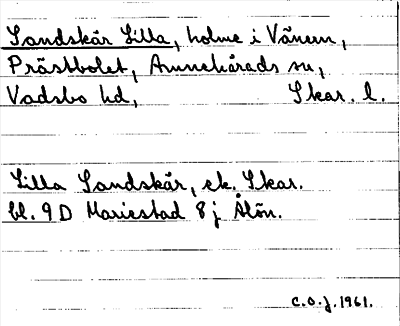 Sandskär Lilla, holme i Vänern,
Prästbolet, Amnehärads sn,
Vadsbo hd, Skar. l.
Lilla Sandskär, ek. Skar.
bl. 9 D Mariestad 8 j Ålön.
C.O.J. 1961.